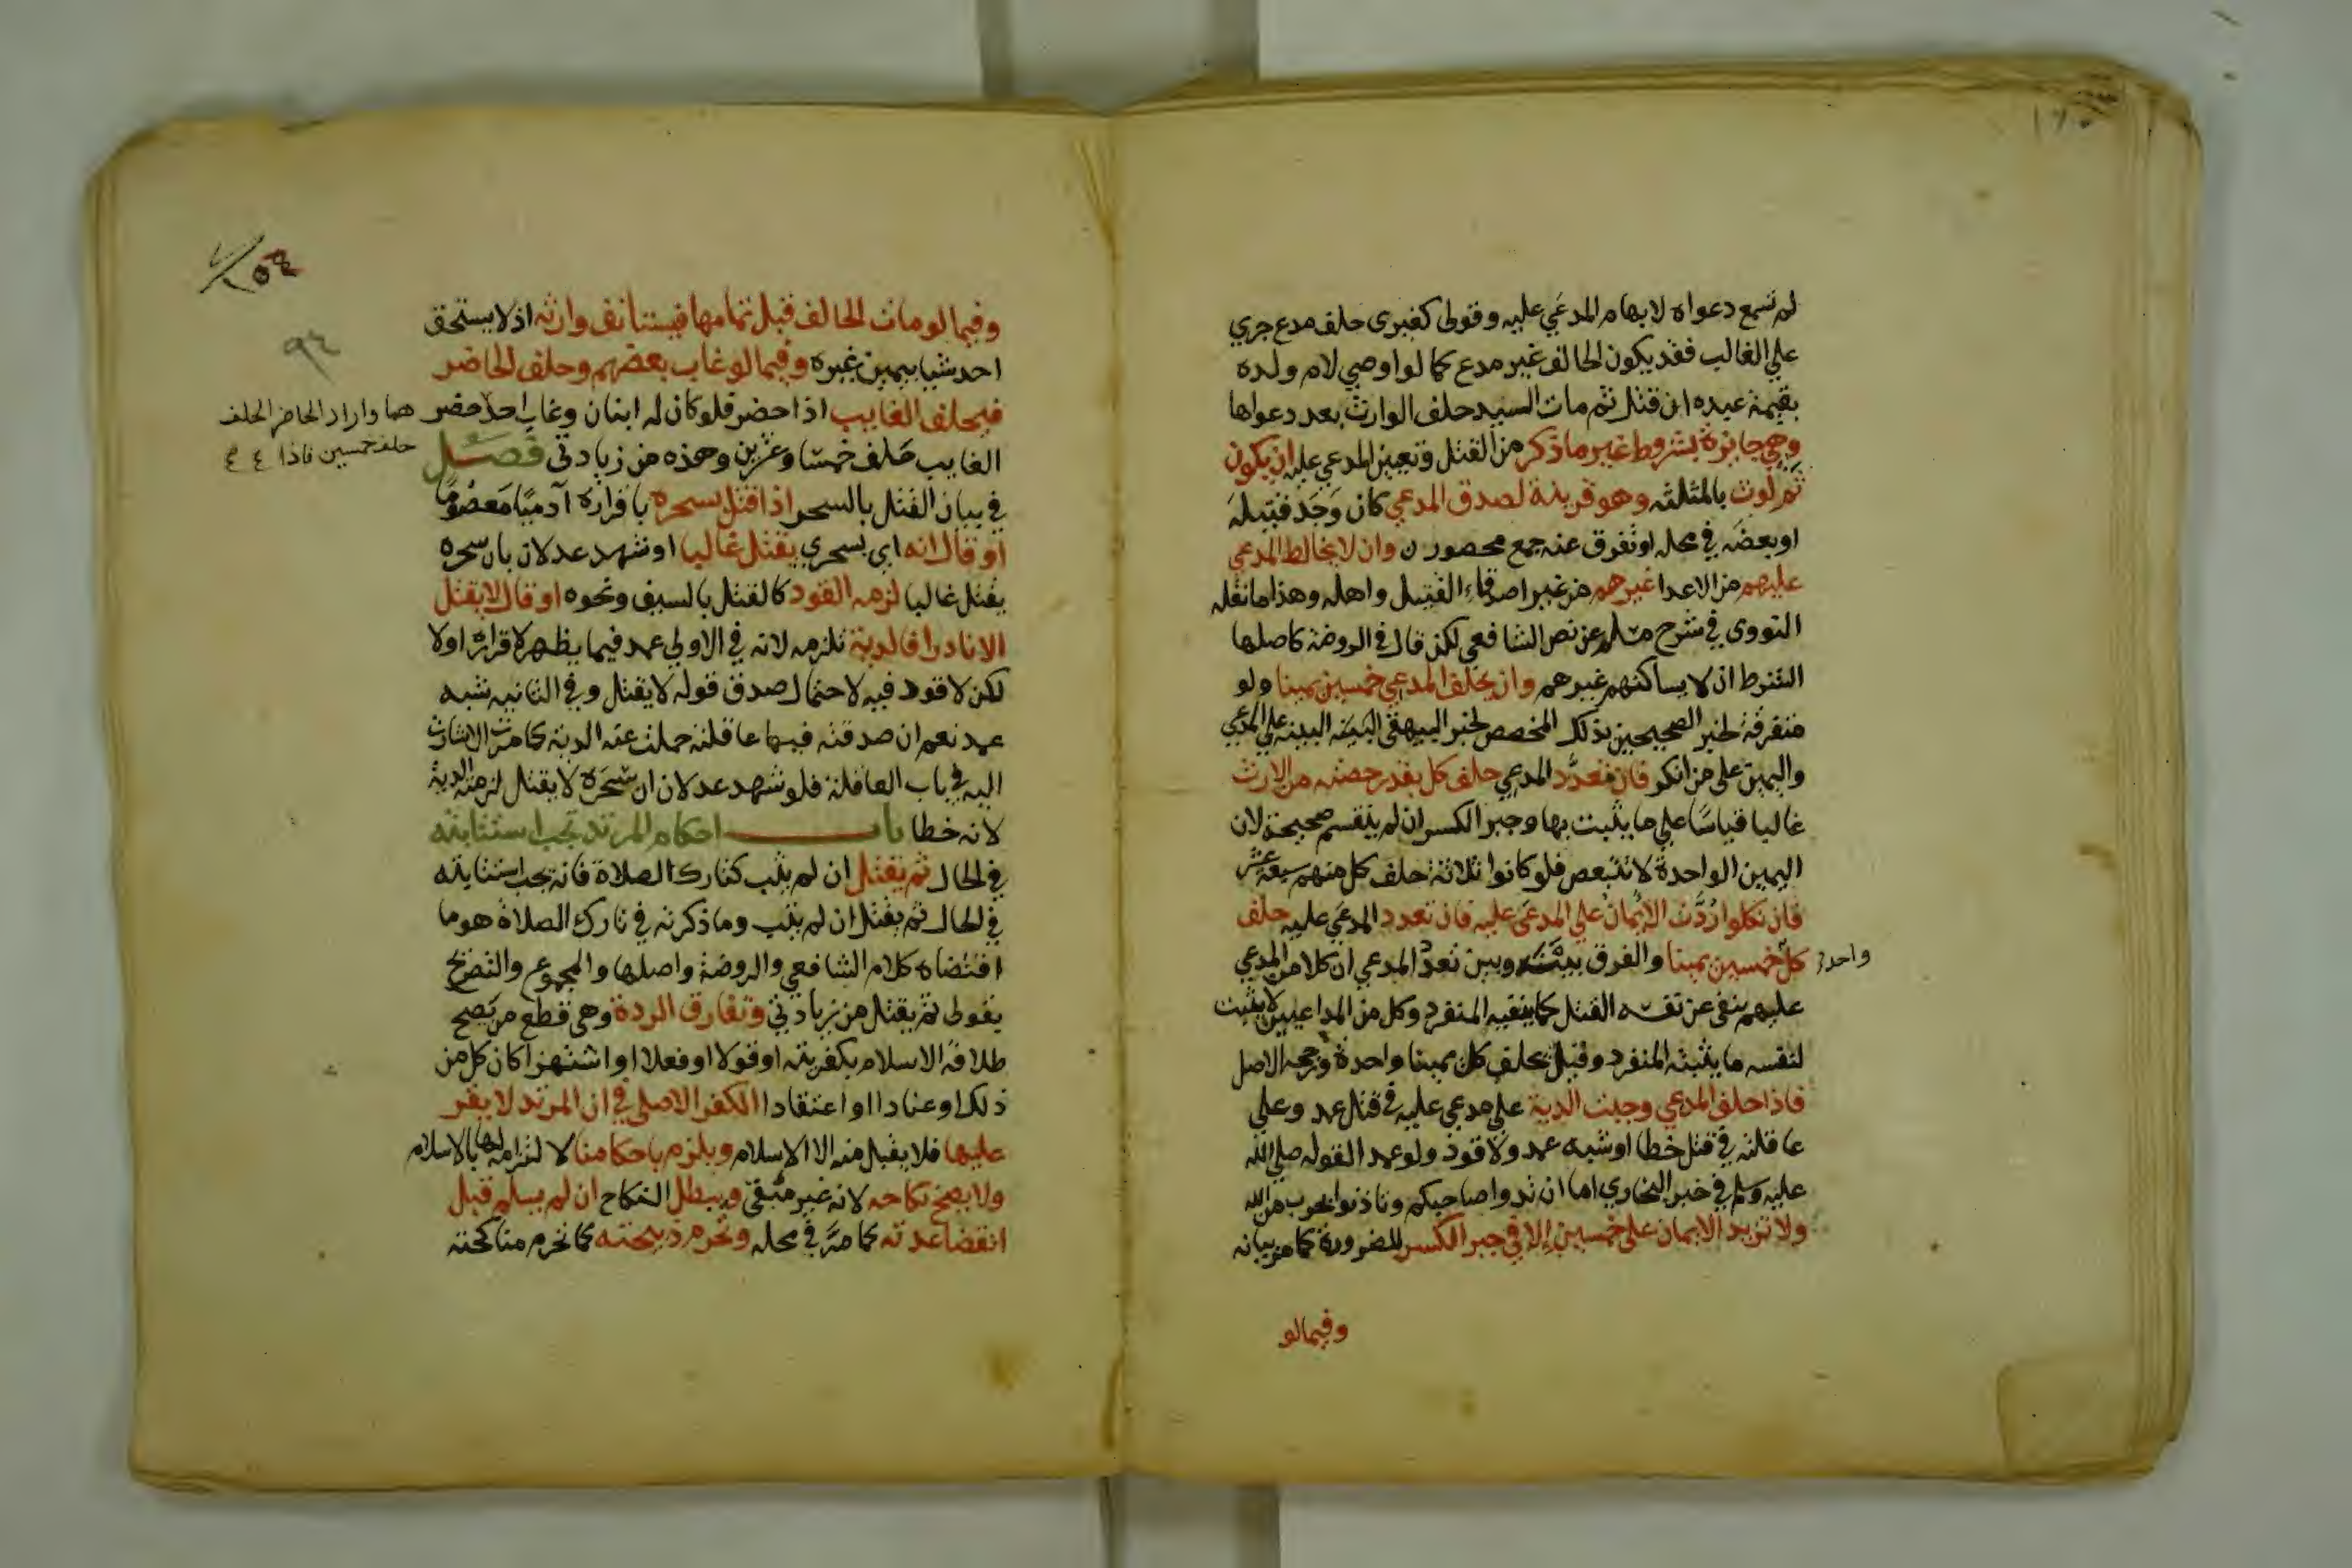 لم تسمع دعواه لابهام المدعي عليه وقولى كغيرى حلف مدع جري
علي الغالب فقد يكون الحالف غير مدع كما لو اوصي لام ولده
بقيمة عبده ان قتل ثم مات السيد حلف الوارث بعد دعواها
وهي جايزة بشروط غير ما ذكر من القتل وتعيين المدعي عليه ان يكون
ثم لوث بالمثلثه وهو قرينة لصدق المدعي كان وجد قتيله
او بعضه في محله او تفرق عنه جمع محصورن وان لا يخالط المدعي
عليهم من الاعدا غيرهم من غير اصدقاء القتيل واهله وهذا ما نقله
النووى في شرح مسلم عن نص الشافعي لكن قال في الروضة كاصلها
الشرط ان لا يساكنهم غيرهم وان يحلف المدعي خمسين يمينا ولو
متفرقة لخبر الصحيحين بذلك المخصص لخبر البيهقى البينة على المدعي
واليمين على من انكر فان تعدد المدعي حلف كل بقدر حصته من الارث
غاليا قياسا علي ما يثبت بها وجبر الكسر ان لم ينقسم صحيحة لان
اليمين الواحدة لا تتبعض فلو كانوا ثلاثة حلف كل منهم سبعة عشر
فان نكلوا ردت الايمان علي المدعي عليه فان تعدد المدعي عليه حلف
كل خمسين يمينا والفرق بينه وبين تعدد المدعي ان كلا من المدعي
واحد
عليهم ينفى عن نفسه القتل كما ينفيه المنفرد وكل من المداعيين لا يثبت
لنفسه ما يثبته المنفرد وقيل يحلف كل يمينا واحدة ورجحه الاصل
فاذا حلف المدعي وجبت الدية علي مدعي عليه في قتل عمد وعلي
عاقلته في قتل خطا او شبه عمد ولا قود ولو عمد القوله صلي الله
عليه وسلم في خبر البخاري اما ان تدوا صاحبكم وتاذنوا بحرب من الله
ولا تزيد الايمان على خمسين إلا في جبر الكسر للضرورة كما مر بيانه
وفيما لو
٩٤
وفيما لو مات الحالف قبل تمامها فيستانف وارثه اذ لا يستحق
احد شيا بيمين غيره وفيما لو غاب بعضهم وحلف الحاضر
فيحلف الغايب اذا حضر فلو كان له ابنان وغاب احد حضر
هما واراد الحاضر الحلف
حلف خمسين فاذا
الغايب حلف خمسا وعشرين وهذه من زيادتى فصل
في بيان القتل بالسحر اذا قتل بسحره باقراره آدميا معصوما
او قال انه اي بسحري يقتل غاليا او شهد عدلان بان سحره
يقتل غاليا لزمه القود كالقتل بالسيف ونحوه او قال لا يقتل
الا نادرا فالدية تلزمه لانه في الاولي عمد فيما يظهر لاقراره اولا
لكن لا قود فيه لاحتمال صدق قوله لا يقتل وفي الثانيه شبه
عمد نعم ان صدقته فيها عاقلته حملت عنه الدية كما مرت الاشارة
اليه في باب العاقلة فلو شهد عدلان ان سحره لا يقتل لزمته الدية
لانه خطا باب احكام المرتد تجب استتابته
في الحال ثم يقتل ان لم يتب كتارك الصلاة فانه يجب استتابته
في الحال ثم يقتل ان لم يتب وما ذكرته في تارك الصلاة هو ما
اقتضاه كلام الشافعي والروضة واصلها والمجموع والتصريح
بقولى ثم يقتل من زيادتي وتفارق الردة وهي قطع من يصح
طلاقه الاسلام بكفر نية او قولا او فعلا او استهزا كان كل من
ذلك او عنادا او اعتقادا الكفر الاصلي في ان المرتد لا يقر
عليها فلا يقبل منه الا الاسلام ويلزم باحكامنا لا لتزامه لها بالاسلام
ولا يصح نكاحه لانه غير مبقى ويبطل النكاح ان لم يسلم قبل
انقضا عدته كما مر في محله وتحرم ذبيحته كما تحرم مناكحته